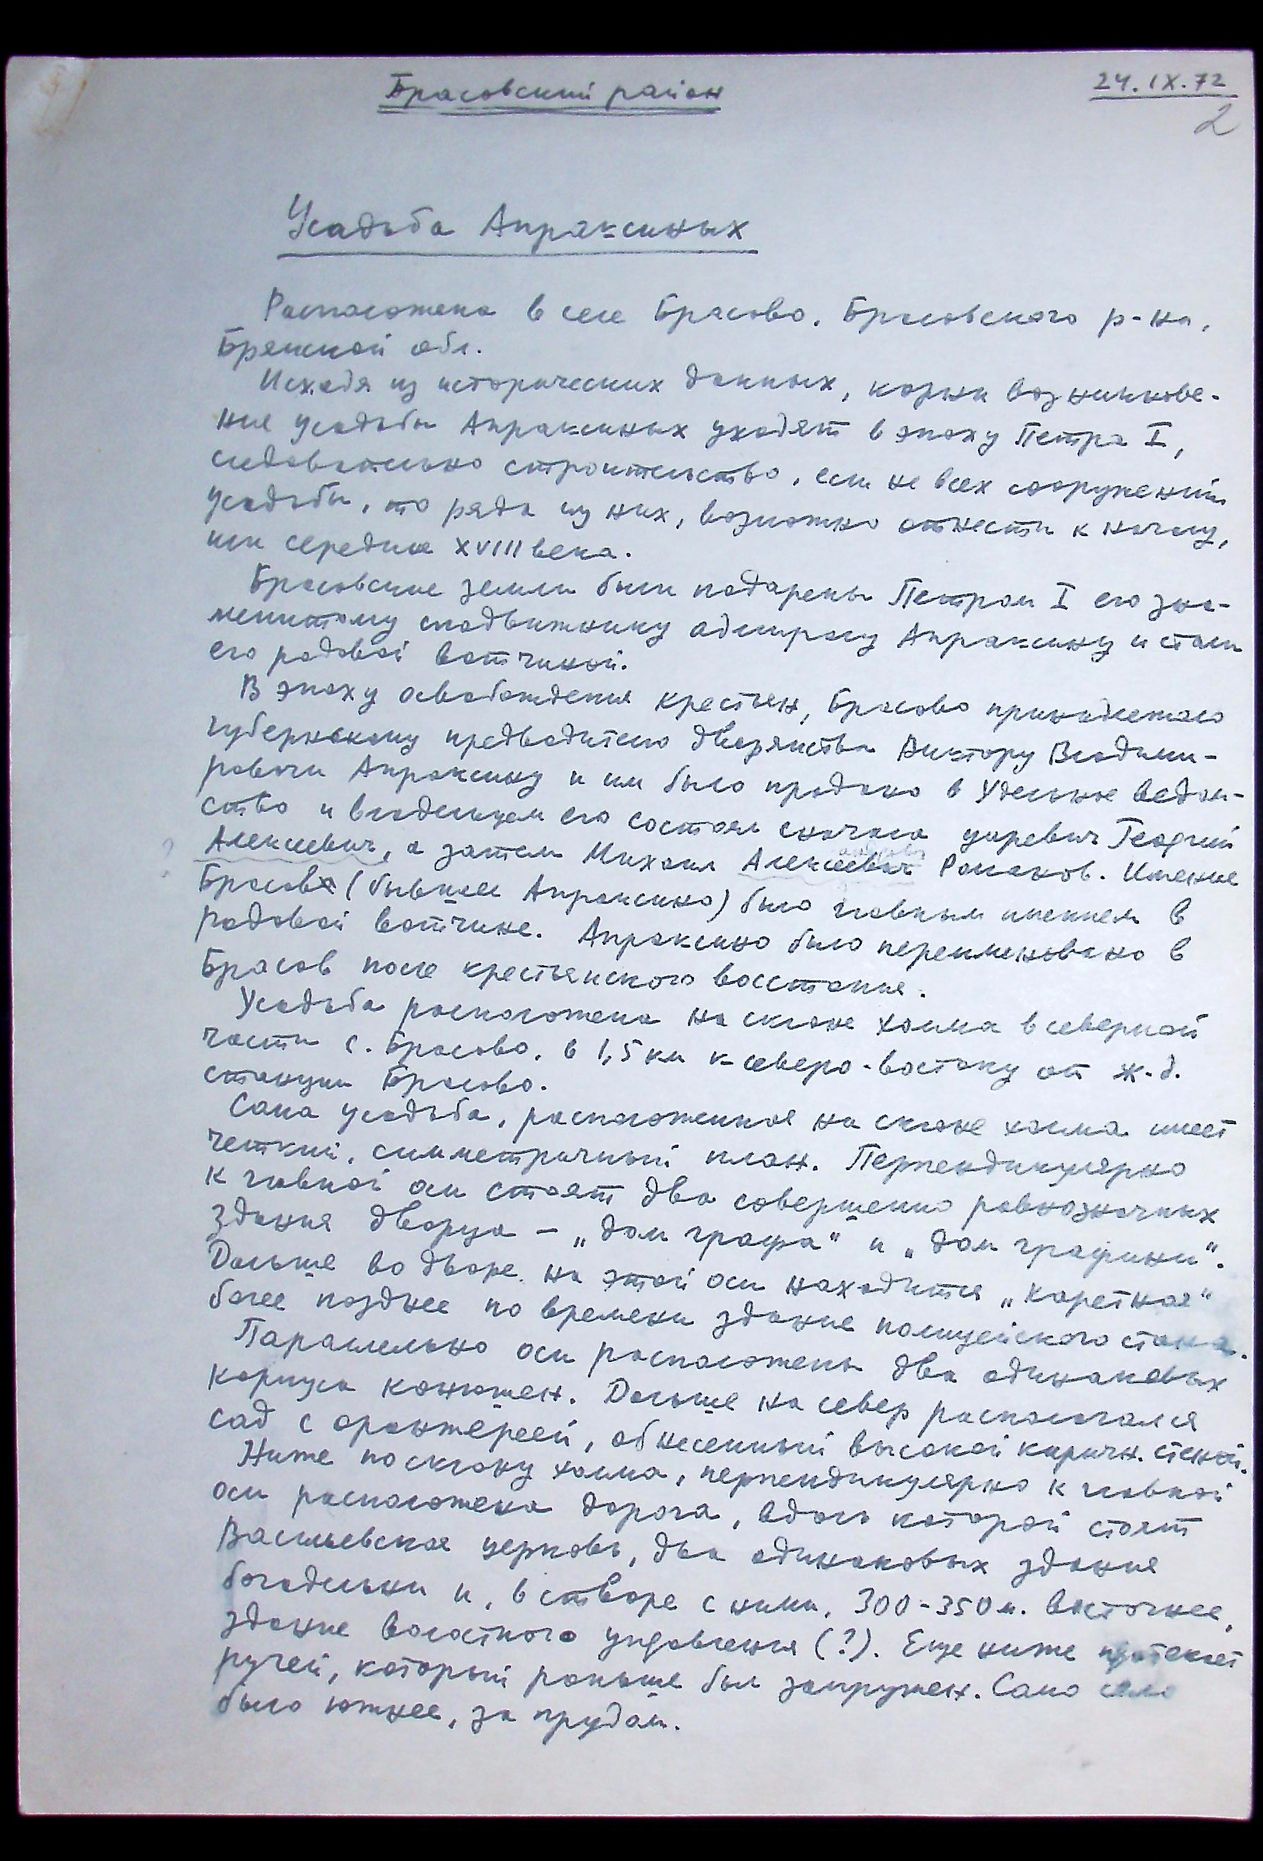 Брасовский район
24.IX.72
2
Усадьба Апраксиных
Расположена в селе Брасово, Брасовского р-на,
Брянской обл.
Исходя из исторических данных, корни возникнове-
ния усадьбы Апраксиных уходят в эпоху Петра I,
следовательно строительство, если не всех сооружений
усадьбы, то ряда из них, возможно отнести к началу,
или середине XVIII века.
Брасовские земли были подарены Петром I его зна-
менитому сподвижнику адмиралу Апраксину и стали
его родовой вотчиной.
В эпоху освобождения крестьян, Брасово принадлежало
губернскому предводителю дворянства Виктору Владими-
ровичу Апраксину и им было продано в Удельное ведом-
ство и владельцем его состоял сначала царевич Георгий
? Алексеевич, а затем Михаил Алексеевич Романов. Имение
Брасово (бывшее Апраксино) было главным имением в
родовой вотчине. Апраксино было переименовано в
Брасов после крестьянского восстания.
Усадьба расположена на склоне холма в северной
части с. Брасово, в 1,5 км к северо-востоку от ж.д.
станции Брасово.
Сама усадьба, расположенная на склоне холма имеет
четкий, симметричный план. Перпендикулярно
к главной оси стоят два совершенно равнозначных
здания дворца – „дом графа“ и „дом графини“.
Дальше во дворе на этой оси находится „каретная“
более позднее по времени здание полицейского стана.
Параллельно оси расположены два одинаковых
корпуса конюшен. Дальше на север располагался
сад с оранжереей, обнесенный высокой кирпичн. стеной.
Ниже по склону холма, перпендикулярно к главной
оси расположена дорога, вдоль которой стоят
Васильевская церковь, два одинаковых здания
богадельни и, в створе с ними, 300-350 м. восточнее,
здание волостного управления (?). Еще ниже протекает
ручей, который раньше был запружен. Само село
было южнее, за прудом.